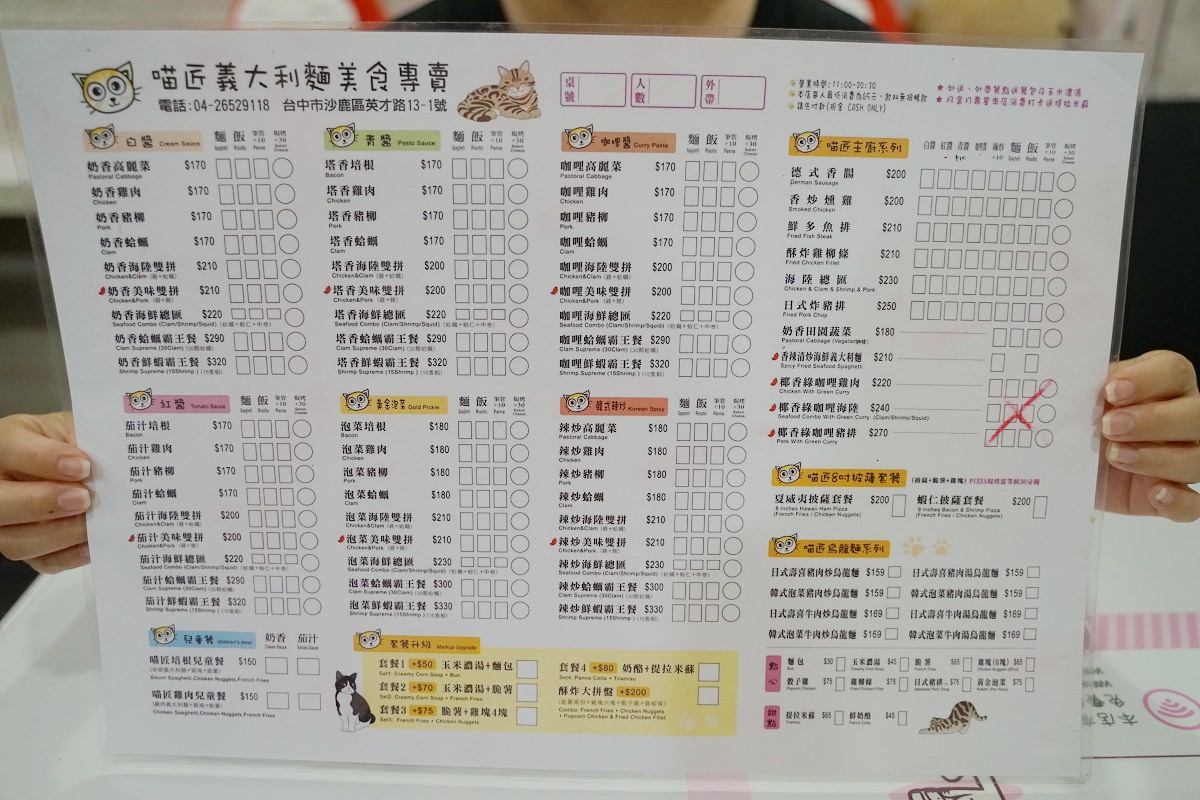 喵匠義大利麵美食專賣
電話:04-26529118 台中市沙鹿區英才路13-1號
桌號 人數 外帶
營業時間:11:00-20:30
請先付款(現金 CASH ONLY)
白醬 Cream Sauce 麵 Spagheti 飯 Risotto 筆管 +10 Penne 焗烤 +30 Baked Cheese
奶香高麗菜 $170
Pastoral Cabbage
奶香雞肉 $170
Chicken
奶香豬柳 $170
Pork
奶香蛤蠣 $170
Clam
奶香海陸雙拼 $210
Chicken&Clam (雞+蛤蠣)
奶香美味雙拼 $210
Chicken&Pork (雞+豬)
奶香海鮮總匯 $220
Seafood Combo (Clam/Shrimp/Squid) (蛤蠣+蝦仁+中卷)
奶香蛤蠣霸王餐 $290
Clam Supreme (30Clam) (30顆蛤蠣)
奶香鮮蝦霸王餐 $320
Shrimp Supreme (15Shrimp) (15隻蝦)
青醬 Pesto Sauce 麵 飯 筆管 +10 Penne 焗烤 +30 Baked Cheese
塔香培根 $170
Bacon
塔香雞肉 $170
Chicken
塔香豬柳 $170
Pork
塔香蛤蠣 $170
Clam
塔香海陸雙拼 $200
Chicken&Clam (雞+蛤蠣)
塔香美味雙拼 $200
Chicken&Pork (雞+豬)
塔香海鮮總匯 $220
Seafood Combo (Clam/Shrimp/Squid) (蛤蠣+蝦仁+中卷)
塔香蛤蠣霸王餐 $290
Clam Supreme (30Clam) (30顆蛤蠣)
塔香鮮蝦霸王餐 $320
Shrimp Supreme (15Shrimp) (15隻蝦)
咖哩醬 Curry Paste 麵 飯 筆管 +10 Penne 焗烤 +30 Baked Cheese
咖哩高麗菜 $170
Pastoral Cabbage
咖哩雞肉 $170
Chicken
咖哩豬柳 $170
Pork
咖哩蛤蠣 $170
Clam
咖哩海陸雙拼 $200
Chicken&Clam (雞+蛤蠣)
咖哩美味雙拼 $200
Chicken&Pork (雞+豬)
咖哩海鮮總匯 $220
Seafood Combo (Clam/Shrimp/Squid) (蛤蠣+蝦仁+中卷)
咖哩蛤蠣霸王餐 $290
Clam Supreme (30Clam) (30顆蛤蠣)
咖哩鮮蝦霸王餐 $320
Shrimp Supreme (15Shrimp) (15隻蝦)
喵匠主廚系列 白醬 紅醬 青醬 咖哩 辣炒 麵 飯 筆管 +10 Penne 焗烤 +30 Baked Cheese
德式香腸 $200
German Sausage
香炒燻雞 $200
Smoked Chicken
鮮多魚排 $210
Fried Fish Steak
酥炸雞柳條 $210
Fried Chicken Fillet
海陸總匯 $230
Chicken & Clam & Shrimp & Pork
日式炸豬排 $250
Fried Pork Chop
奶香田園蔬菜 $180
Pastoral Cabbage (Vegetarian)
香辣清炒海鮮義大利麵 $210
Spicy Fried Seafood Spaghetti
椰香綠咖哩雞肉 $220
Chicken With Green Curry
椰香綠咖哩海陸 $240
Seafood Combo With Green Curry (Clam/Shrimp/Squid)
椰香綠咖哩豬排 $270
Pork With Green Curry
紅醬 Tomato Sauce 麵 飯 筆管 +10 Penne 焗烤 +30 Baked Cheese
茄汁培根 $170
Bacon
茄汁雞肉 $170
Chicken
茄汁豬柳 $170
Pork
茄汁蛤蠣 $170
Clam
茄汁海陸雙拼 $200
Chicken&Clam (雞+蛤蠣)
茄汁美味雙拼 $200
Chicken&Pork (雞+豬)
茄汁海鮮總匯 $220
Seafood Combo (Clam/Shrimp/Squid) (蛤蠣+蝦仁+中卷)
茄汁蛤蠣霸王餐 $290
Clam Supreme (30Clam) (30顆蛤蠣)
茄汁鮮蝦霸王餐 $320
Shrimp Supreme (15Shrimp) (15隻蝦)
黃金泡菜 Gold Pickle 麵 飯 筆管 +10 Penne 焗烤 +30 Baked Cheese
泡菜培根 $180
Bacon
泡菜雞肉 $180
Chicken
泡菜豬柳 $180
Pork
泡菜蛤蠣 $180
Clam
泡菜海陸雙拼 $210
Chicken&Clam (雞+蛤蠣)
泡菜美味雙拼 $210
Chicken&Pork (雞+豬)
泡菜海鮮總匯 $230
Seafood Combo (Clam/Shrimp/Squid) (蛤蠣+蝦仁+中卷)
泡菜蛤蠣霸王餐 $300
Clam Supreme (30Clam) (30顆蛤蠣)
泡菜鮮蝦霸王餐 $330
Shrimp Supreme (15Shrimp) (15隻蝦)
韓式辣炒 Korean Spicy 麵 飯 筆管 +10 Penne 焗烤 +30 Baked Cheese
辣炒高麗菜 $180
Pastoral Cabbage
辣炒雞肉 $180
Chicken
辣炒豬柳 $180
Pork
辣炒蛤蠣 $180
Clam
辣炒海陸雙拼 $210
Chicken&Clam (雞+蛤蠣)
辣炒美味雙拼 $210
Chicken&Pork (雞+豬)
辣炒海鮮總匯 $230
Seafood Combo (Clam/Shrimp/Squid) (蛤蠣+蝦仁+中卷)
辣炒蛤蠣霸王餐 $300
Clam Supreme (30Clam) (30顆蛤蠣)
辣炒鮮蝦霸王餐 $330
Shrimp Supreme (15Shrimp) (15隻蝦)
喵匠8吋披薩套餐 (披薩+脆薯+雞塊)
夏威夷披薩套餐 $200
8 Inches Hawaii Ham Pizza
(French Fries / Chicken Nuggets)
蝦仁披薩套餐 $200
8 Inches Bacon & Shrimp Pizza
(French Fries / Chicken Nuggets)
喵匠烏龍麵系列
日式壽喜豬肉炒烏龍麵 $159 日式壽喜豬肉湯烏龍麵 $159
韓式泡菜豬肉炒烏龍麵 $159 韓式泡菜豬肉湯烏龍麵 $159
日式壽喜牛肉炒烏龍麵 $169 日式壽喜牛肉湯烏龍麵 $169
韓式泡菜牛肉炒烏龍麵 $169 韓式泡菜牛肉湯烏龍麵 $169
兒童餐 children's meal 奶香 Cream Sauce 茄汁 Tomato Sauce
喵匠培根兒童餐 $150
Bacon Spaghetti,Chicken Nuggets,French Fries
喵匠雞肉兒童餐 $150
Chicken Spaghetti,Chicken Nuggets,French Fries
套餐升級 Markup Upgrade
套餐1 +$50 玉米濃湯+麵包
Set1: Creamy Corn Soup + Bun
套餐2 +$70 玉米濃湯+脆薯
Set2: Creamy Corn Soup + French Fries
套餐3 +$75 脆薯+雞塊4塊
Set3: French Fries + Chicken Nuggets
套餐4 +$80 奶酪+提拉米蘇
Set4: Panna Cotta + Tiramisu
酥炸大拼盤 +$200
Combo: French Fries + Chicken Nuggets
+ Popcorn Chicken & Fried Chicken Fillet
點心 麵包 $30 玉米濃湯 $45 脆薯 $65 雞塊(6塊) $65
骰子雞 $75 雞柳條 $75 日式豬排 $75 黃金泡菜 $75
甜點 提拉米蘇 $65 鮮奶酪 $45